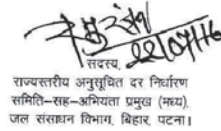 22/07/16
सदस्य,
राज्यस्तरीय अनुसूचित दर निर्धारण
समिति–सह–अभियंता प्रमुख (मध्य),
जल संसाधन विभाग, बिहार, पटना।